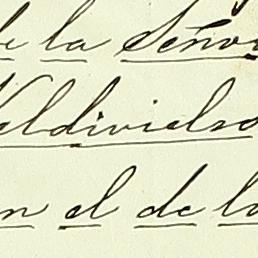 de la Señor
Valdivielso
en el de la